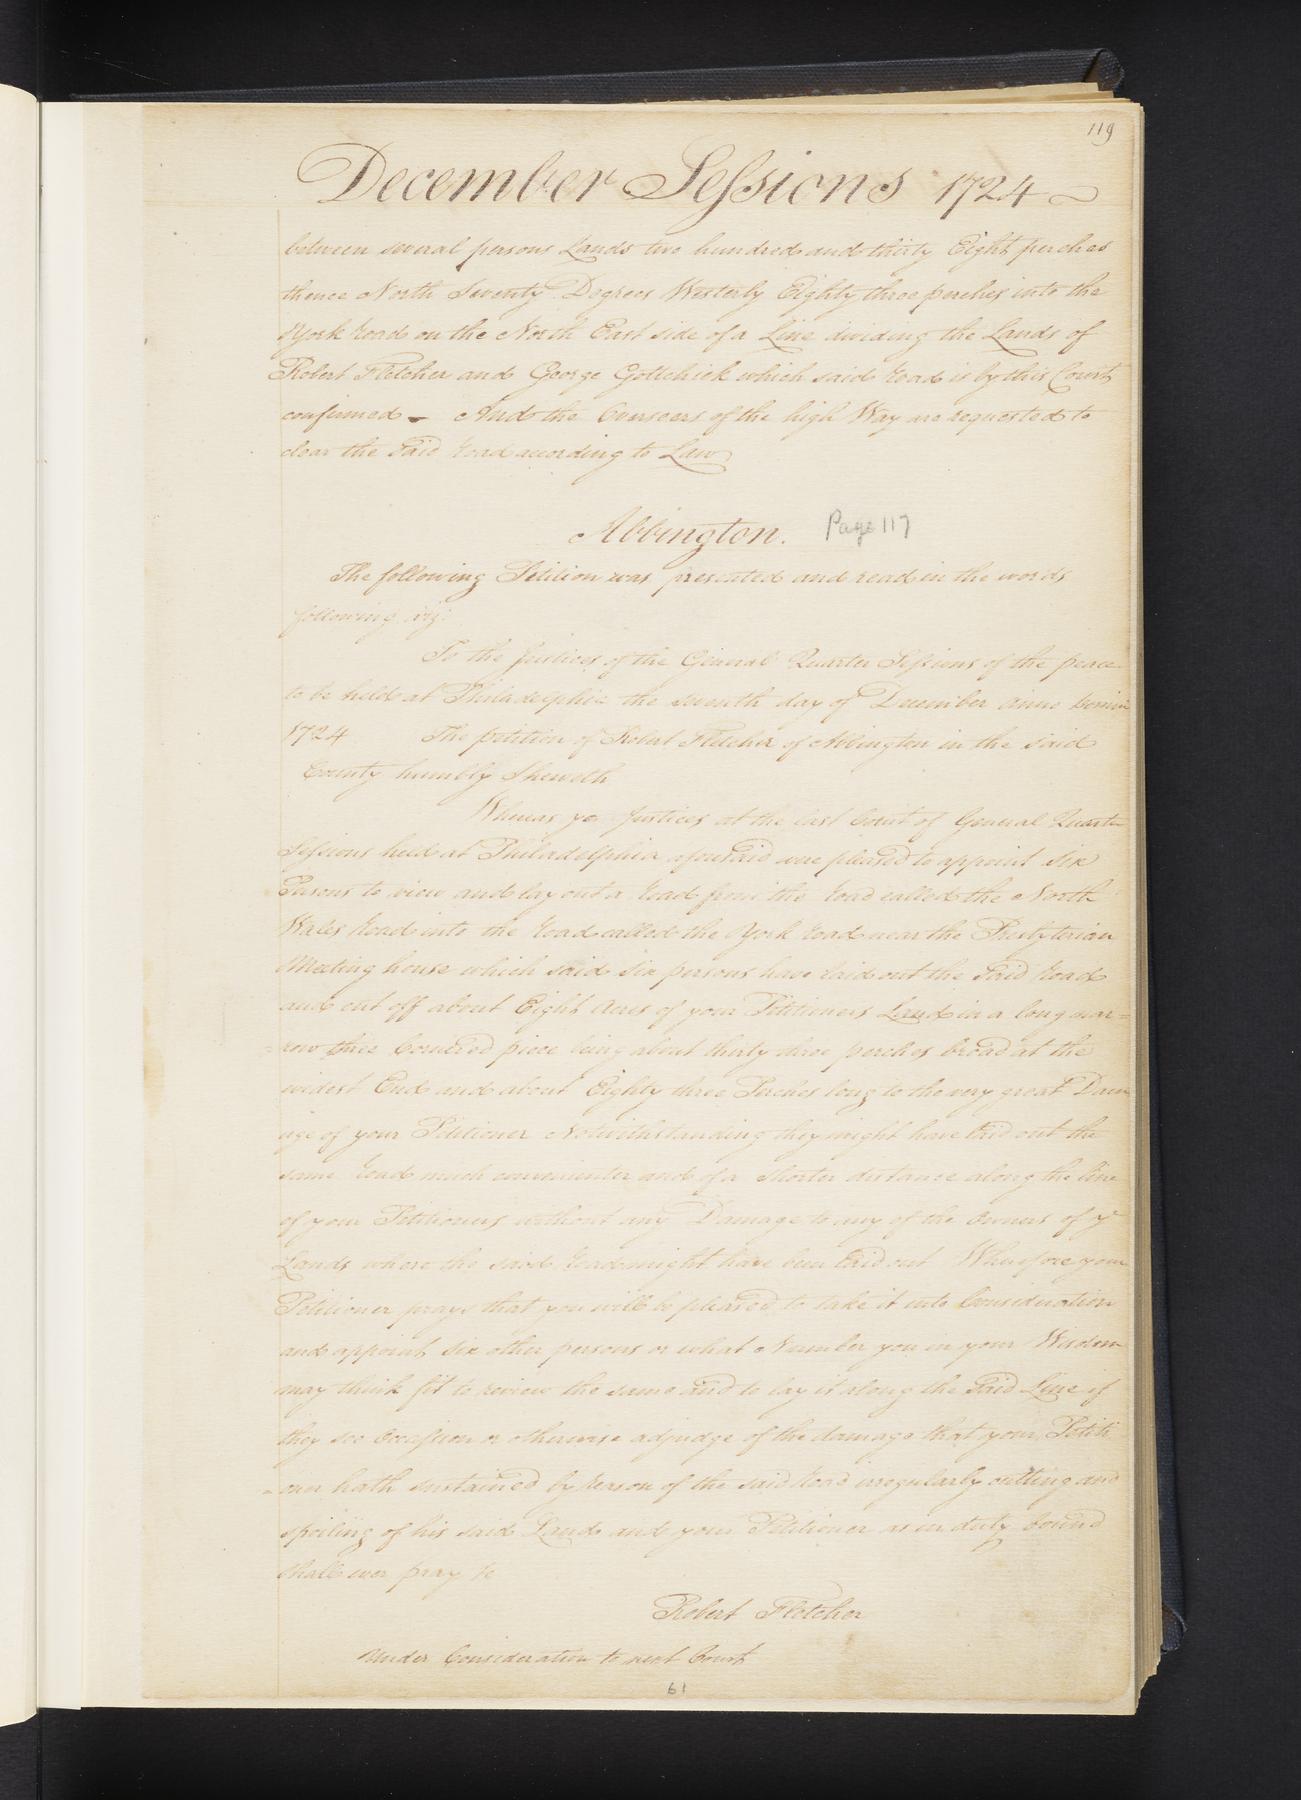 119
December Sessions 1724
between several persons Lands two hundred and thirty Eight perches
thence North Seventy Degrees Westerly Eighty three perches into the
York Road on the North East side of a Line dividing the Lands of
Robert Fletcher and George Gottchick which said Road is by this Court
confirmed - And the Overseers of the high Way are requested to
clear the said Road according to Law
Abbington. Page 117
The following Petition was presented and read in the words
following viz:
To the Justices of the General Quarter Sessions of the peace
to be held at Philadelphia the seventh day of December anno Domini
1724 The petition of Robert Fletcher of Abbington in the said
County humbly Sheweth
Whereas ye Justices at the last Court of General Quarter
Sessions held at Philadelphia aforesaid were pleased to appoint six
Persons to view and lay out a Road from the Road called the North
Wales Road into the Road called the York Road near the Presbyterian
Meeting house which said six persons have laid out the said Road
and cut off about Eight Acres of your Petitioners Land in a long nar=
=row three Cornered piece being about thirty three perches broad at the
widest End and about Eighty three Perches long to the very great Dam
age of your Petitioner Notwithstanding they might have laid out the
same Road much convenienter and of a shorter distance along the line
of your Petitioners without any Damage to any of the Owners of ye
Lands where the said Road might have been laid out Wherefore your
Petitioner prays that you will be pleased to take it into Consideration
and appoint six other persons or what Number you in your Wisdom
may think fit to review the same and to lay it along the said Line if
they see Occasion or otherwise adjudge of the damage that your Petiti
=oner hath sustained by Reason of the said Road irregularly cutting and
spoiling of his said Land and your Petitioner as in duty bound
shall ever pray &c
Robert Fletcher
Under Consideration to next Court
61